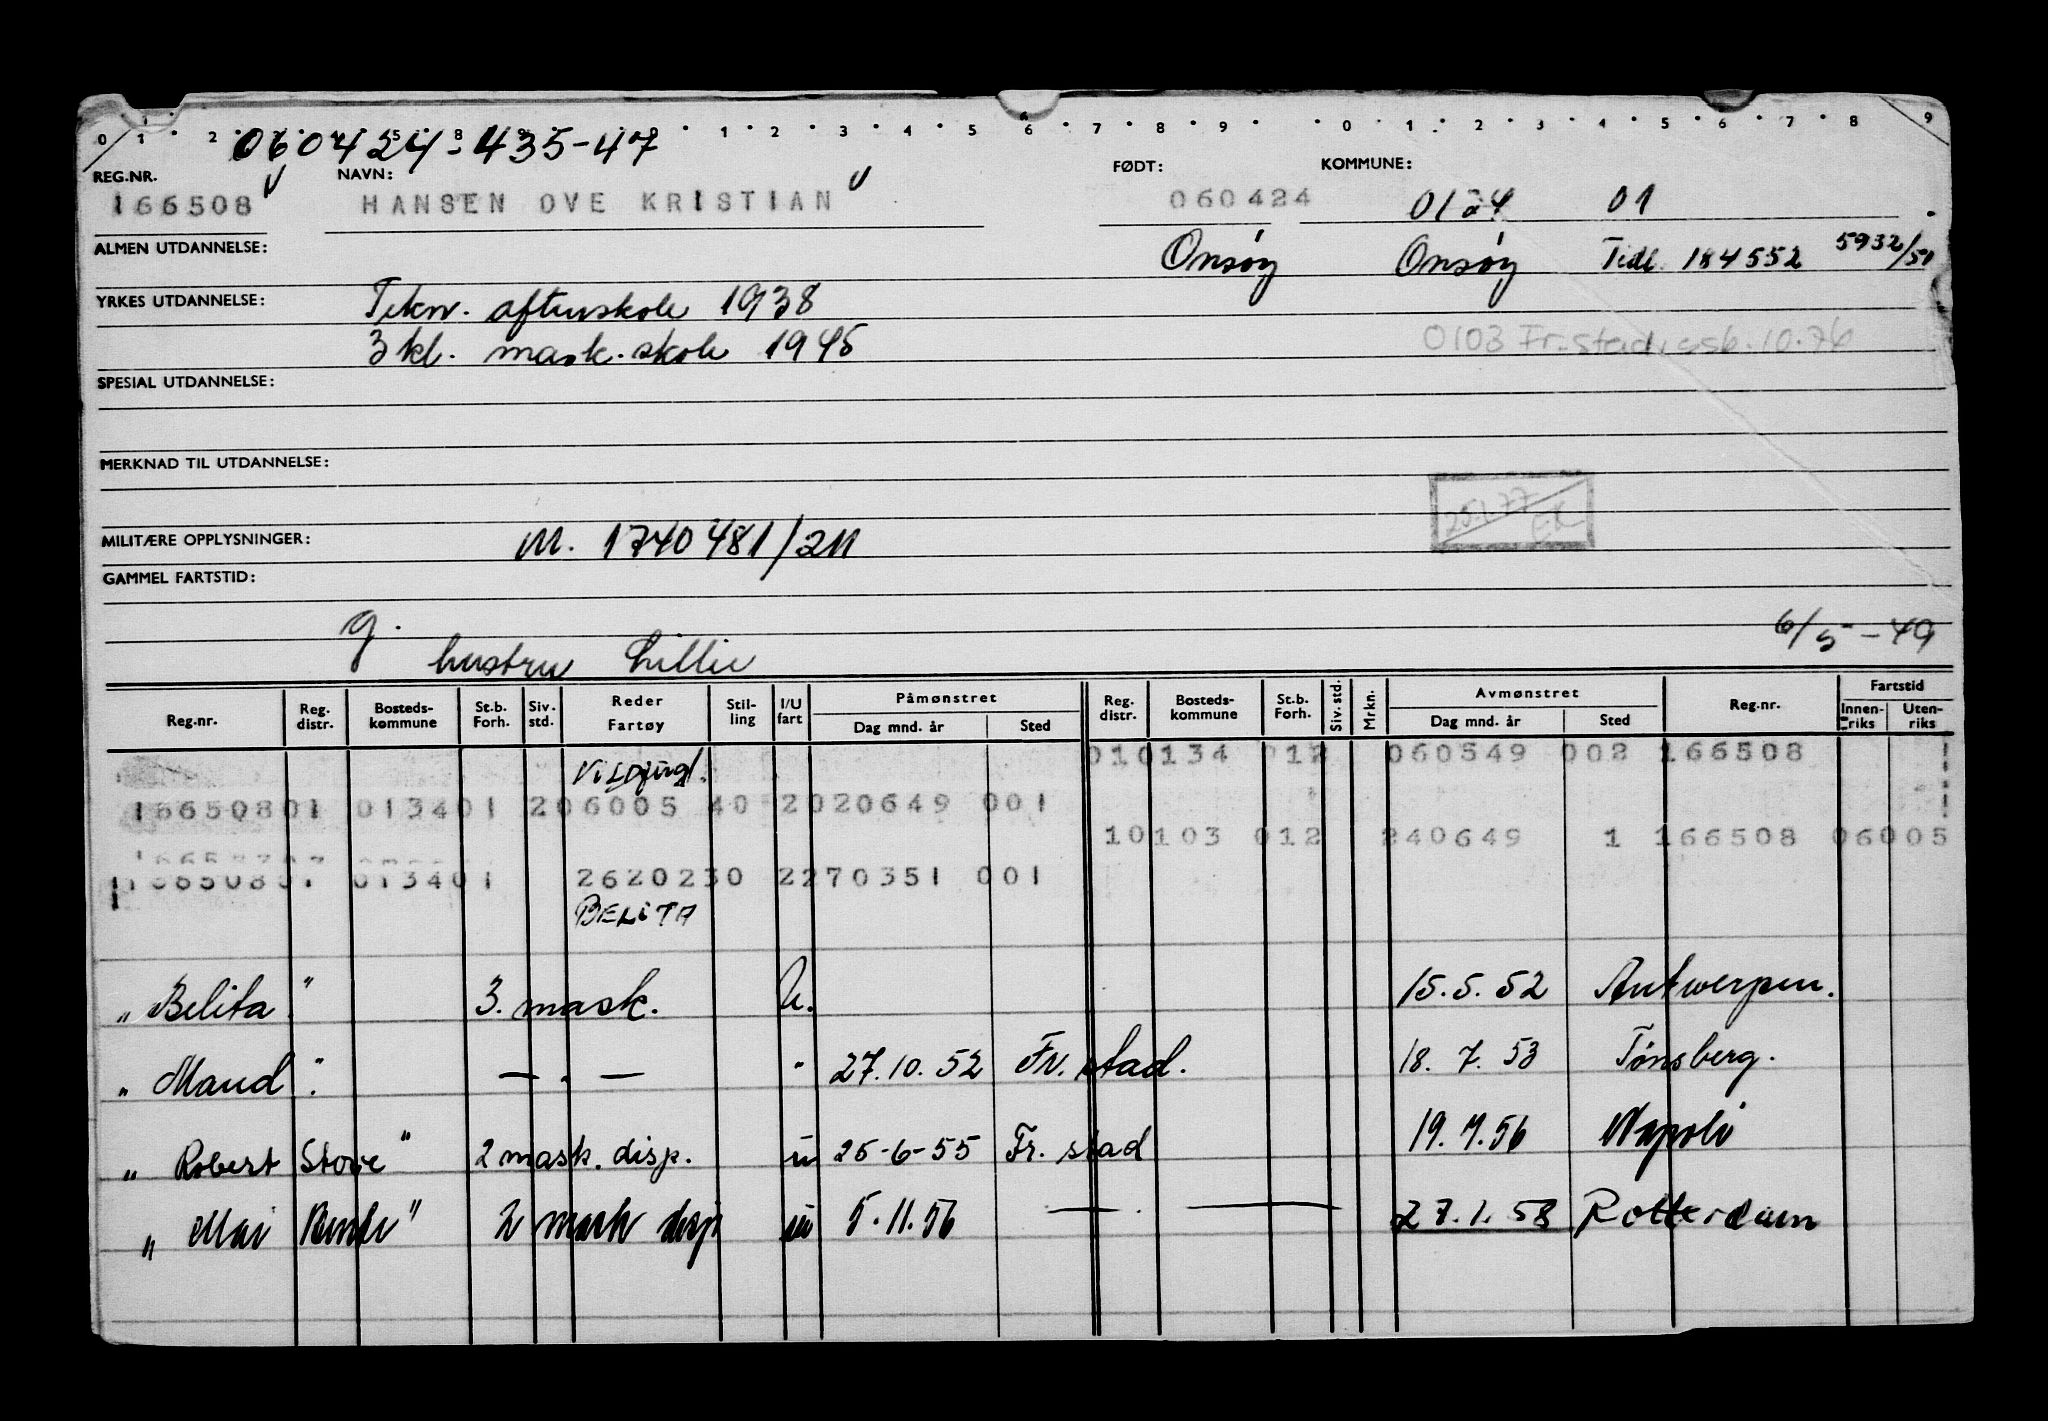 0 1 2 1 2 3 4 5 6 7 8 9 0 1 2 3 4 5 6 7 8 9
060424-435-47
REG.NR. NAVN: FØDT: KOMMUNE:
166508 HANSEN OVE KRISTIAN 060424 0124 01
ALMEN UTDANNELSE: Onsøy Onsøy Tidl. 184552 5932/51
YRKES UTDANNELSE: Tekn. aftenskole 1938
3 kl. mask.skole 1945 0103 Fr.stad, 10.76
SPESIAL UTDANNELSE:
MERKNAD TIL UTDANNELSE:
25.1.77
MILITÆRE OPPLYSNINGER: M. 1740481/211
GAMMEL FARTSTID:
g. hustru Lillie 6/5-49
Reg.nr. Reg. distr. Bosteds-kommune St.b. Forh. Siv. std. Reder Fartøy Stil-ling I/U fart Påmønstret Dag mnd. år Sted Reg. distr. Bosteds-kommune St.b. Forh. Siv. std. Mrkn. Avmønstret Dag mnd. år Sted Reg.nr. Fartstid Innen-riks Uten-riks
010134 012 060549 002 166508
16650801 013401 206005 40 2020649 001
10103 012 240649 1 166508 06005
013401 2620230 2270351 001
BELITA
„ Belita " 3. mask. U. 15.5.52 Antwerpen.
„ Maud " — „ — " 27.10.52 Fr. stad. 18.7.53 Tønsberg.
„ Robert Stove " 2 mask. disp. u 25-6-55 Fr. stad 19.7.56 Napoli
„ Mai Bente " 2 mask disp u 5.11.56 — . — 27.1.58 Rotterdam